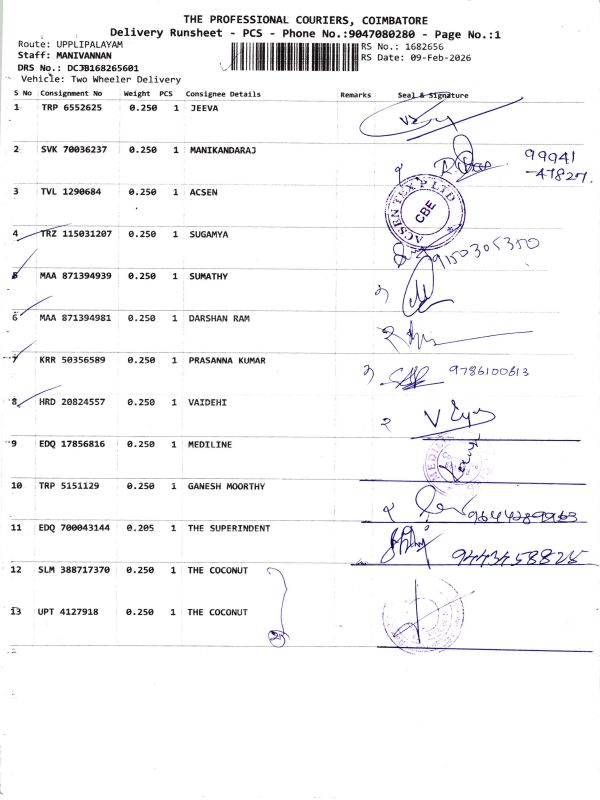 THE PROFESSIONAL COURIERS, COIMBATORE
Delivery Runsheet - PCS - Phone No.:9047080280 - Page No.:1
Route: UPPLIPALAYAM RS No.: 1682656
Staff: MANIVANNAN RS Date: 09-Feb-2026
DRS No.: DCJB168265601
Vehicle: Two Wheeler Delivery
S No Consignment No Weight PCS Consignee Details Remarks Seal & Signature
1 TRP 6552625 0.250 1 JEEVA
2 SVK 70036237 0.250 1 MANIKANDARAJ 99941
-47827.
3 TVL 1290684 0.250 1 ACSEN ACSEN TEX P LTD CBE
4 TRZ 115031207 0.250 1 SUGAMYA 9150305350
5 MAA 871394939 0.250 1 SUMATHY
6 MAA 871394981 0.250 1 DARSHAN RAM
7 KRR 50356589 0.250 1 PRASANNA KUMAR 9786100613
8 HRD 20824557 0.250 1 VAIDEHI
9 EDQ 17856816 0.250 1 MEDILINE
10 TRP 5151129 0.250 1 GANESH MOORTHY
11 EDQ 700043144 0.205 1 THE SUPERINDENT 9443458825
12 SLM 388717370 0.250 1 THE COCONUT
13 UPT 4127918 0.250 1 THE COCONUT